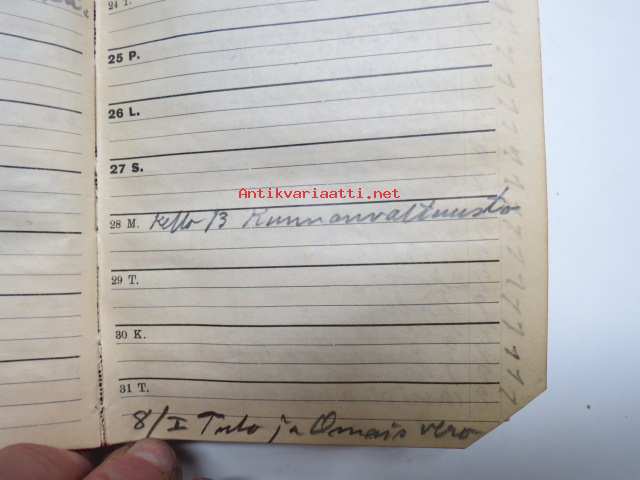 24 T.
25 P.
26 L.
27 S.
Antikvariaatti.net
28 M. Kello 13 Kunnanvaltuusto
29 T.
30 K.
31 T.
8/I Tulo ja Omais vero